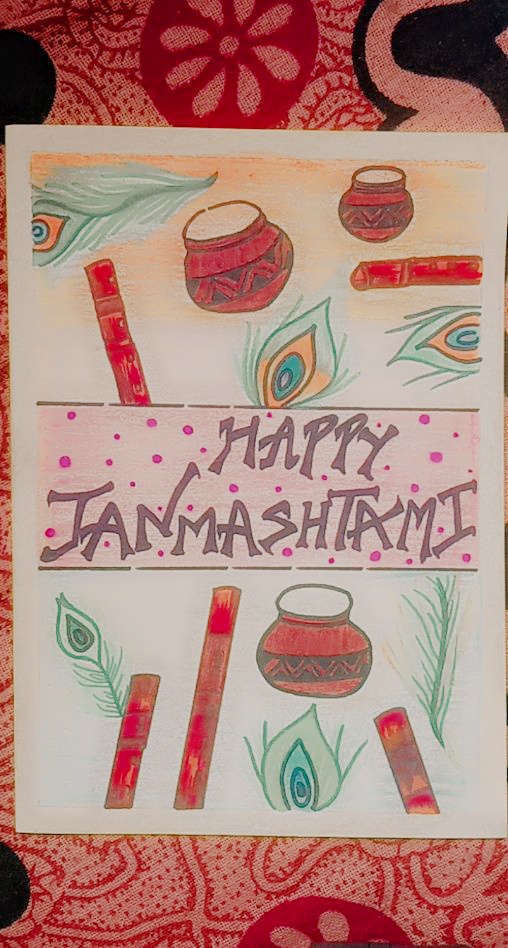 HAPPY
JANMASHTAMI